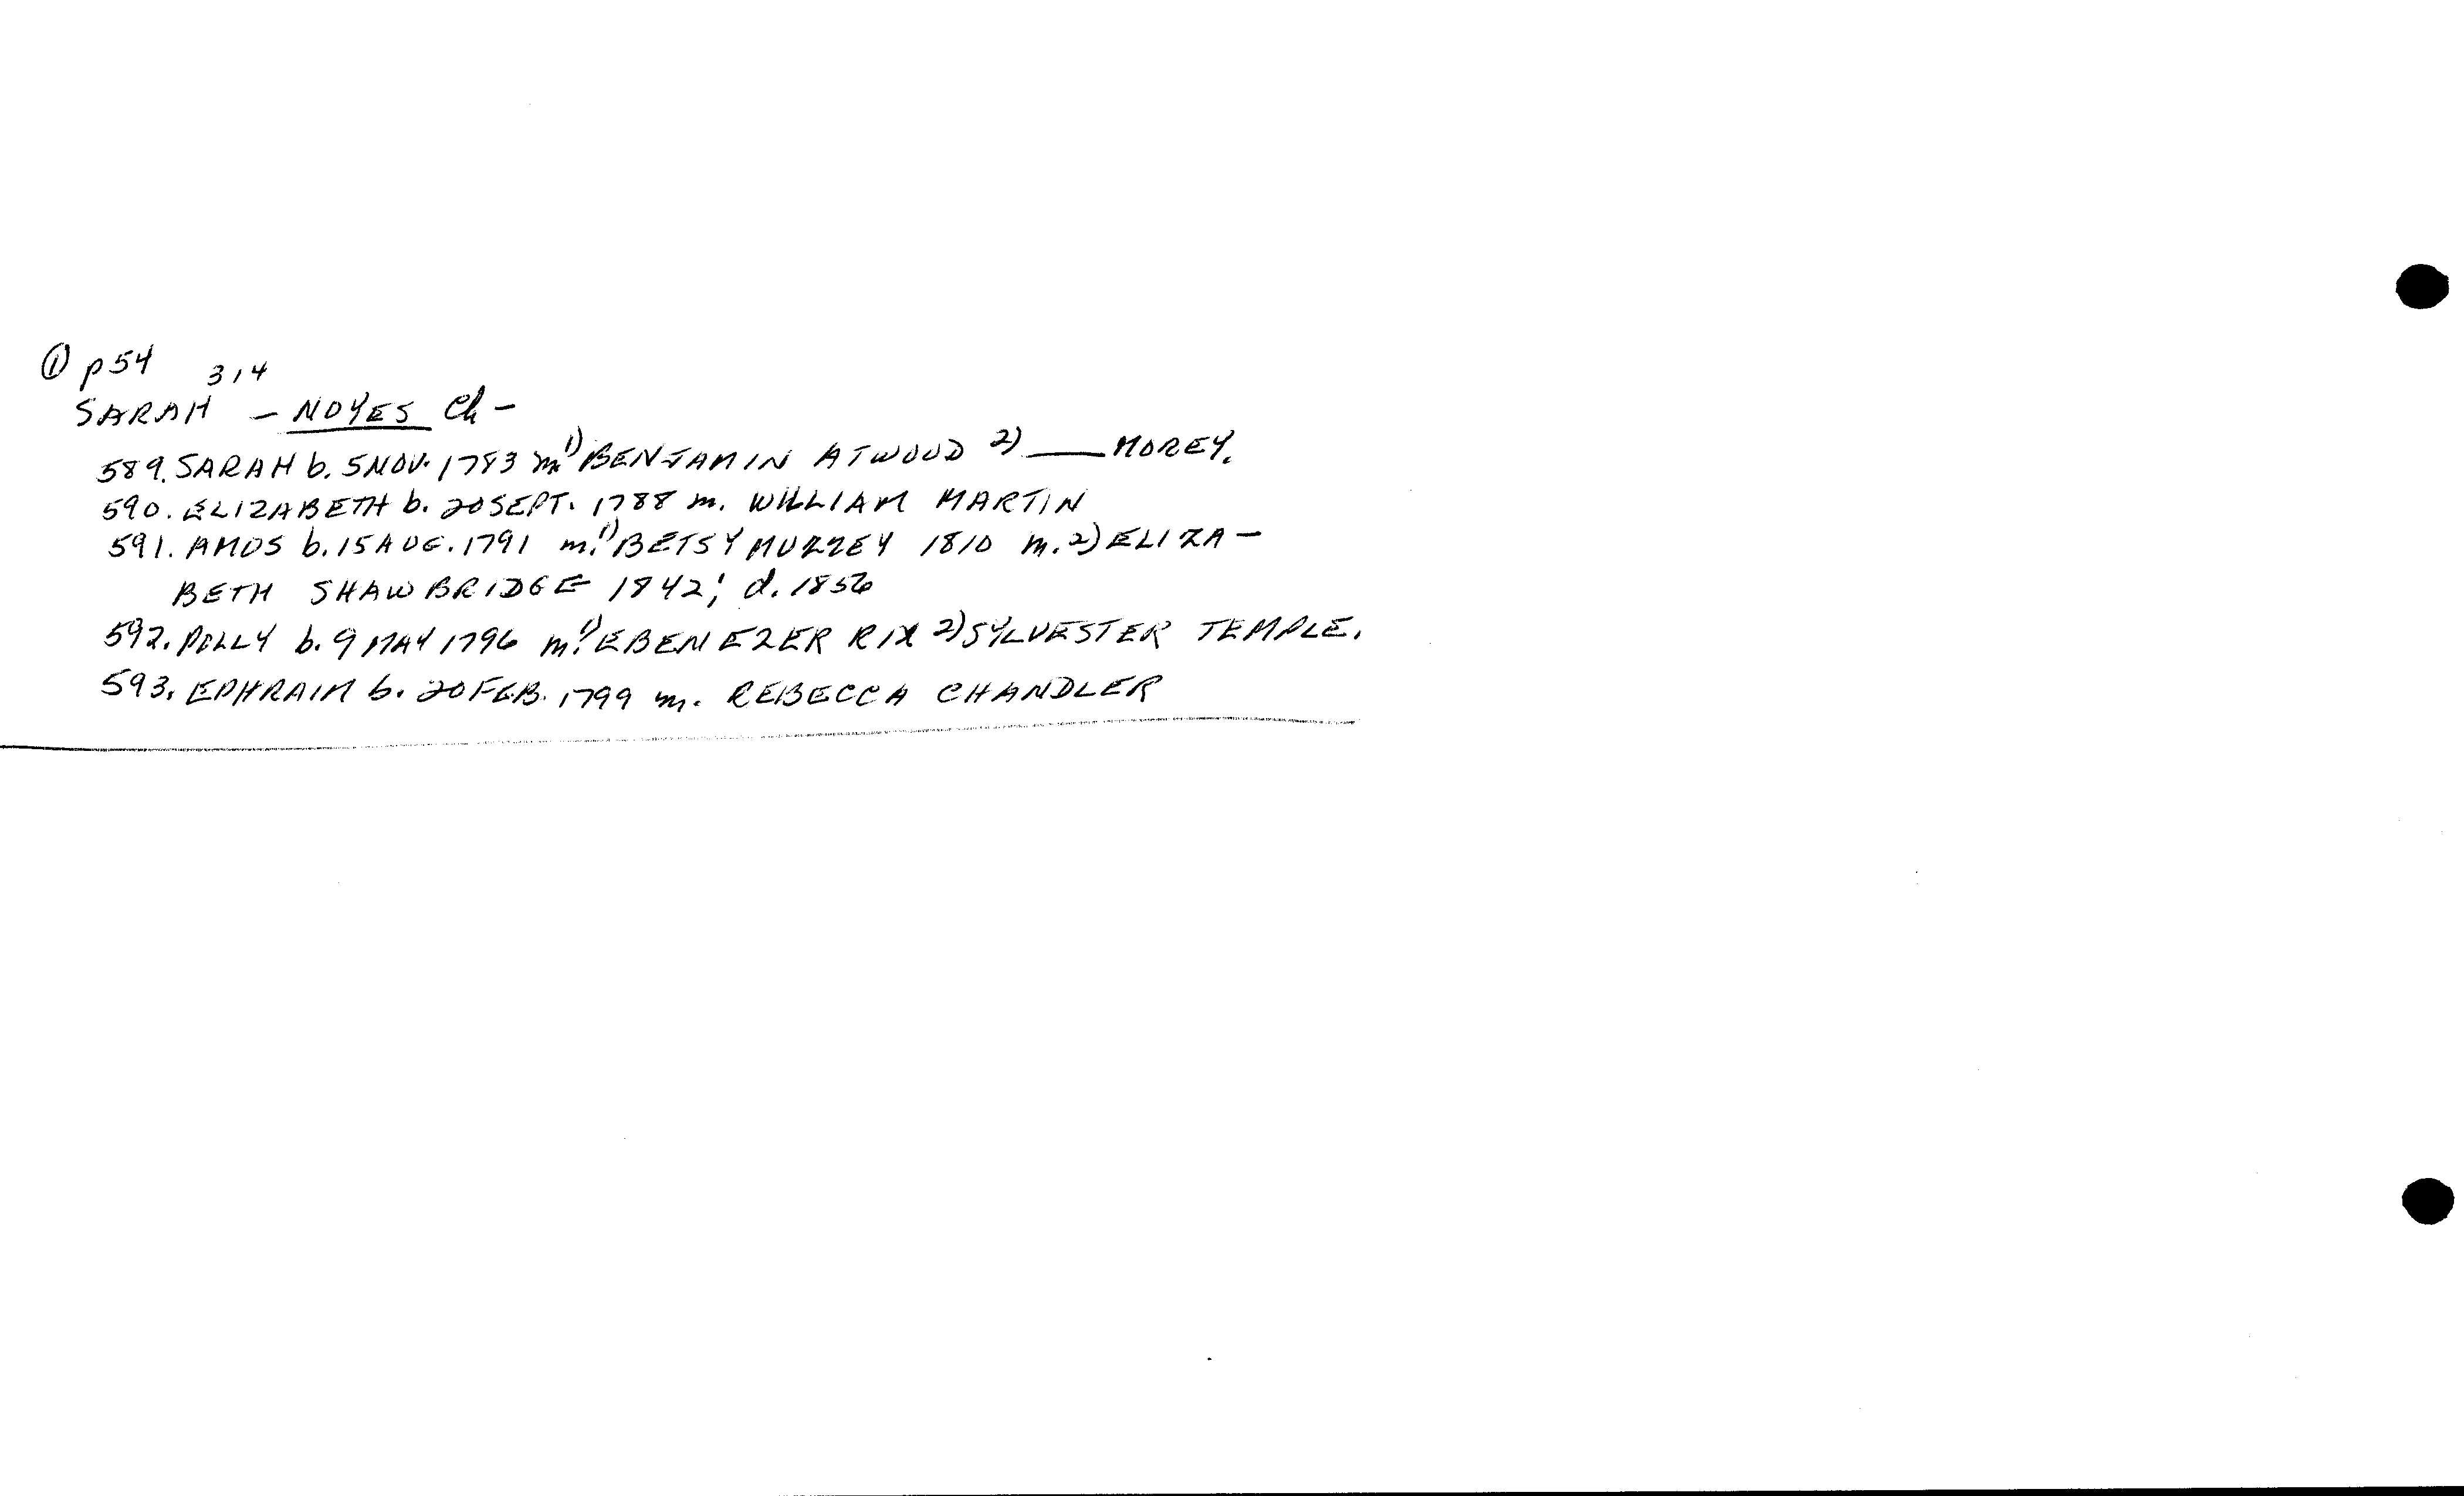 ① p54 314
SARAH - NOYES Ch -
589. SARAH b. 5 NOV. 1783 m. 1) BENJAMIN ATWOOD 2) ____ MOREY.
590. ELIZABETH b. 20 SEPT. 1788 m. WILLIAM MARTIN
591. AMOS b. 15 AUG. 1791 m. 1) BETSY MUZZEY 1810 m. 2) ELIZA-
BETH SHAW BRIDGE 1842; d. 1856
592. POLLY b. 9 MAY 1796 m. 1) EBENEZER RIX 2) SYLVESTER TEMPLE.
593. EPHRAIM b. 20 FEB. 1799 m. REBECCA CHANDLER